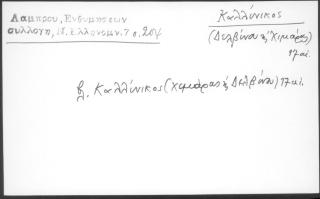 Λάμπρου, Ἐνθυμήσεων
συλλογή, Ν. Ἑλληνομν. 7 σ. 204
Καλλίνικος
(Δελβίνου ἤ Χιμάρας)
17 αἰ.
βλ. Καλλίνικος (Χιμάρας ἤ Δελβίνου) 17 αἰ.